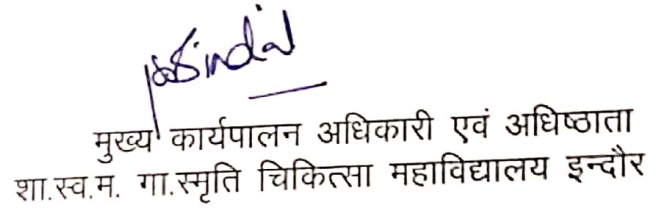 मुख्य कार्यपालन अधिकारी एवं अधिष्ठाता
शा.स्व.म. गा.स्मृति चिकित्सा महाविद्यालय इन्दौर